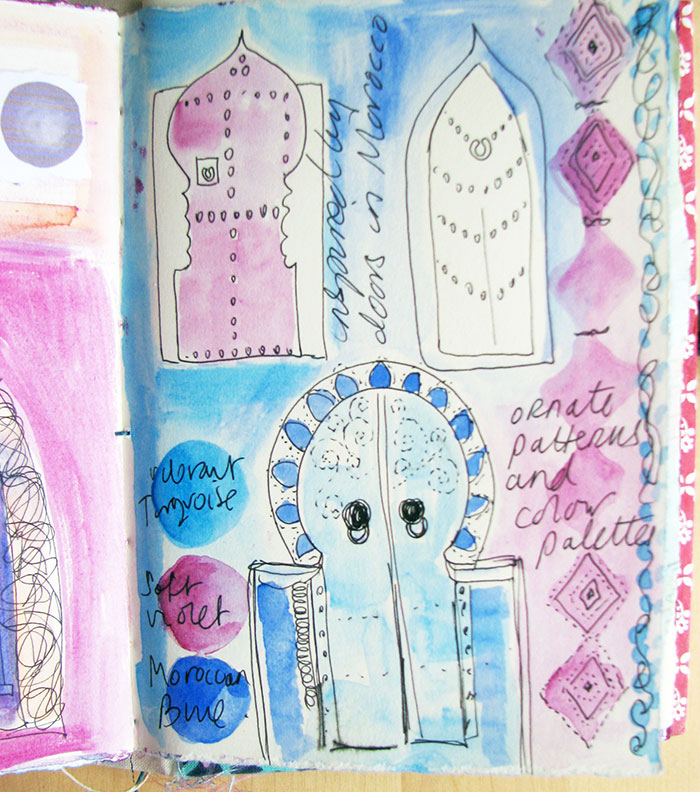 inspired by
doors in Morocco
ornate
patterns
and
colour
palettes
vibrant
Turqoise
Soft
violet
Moroccan
Blue